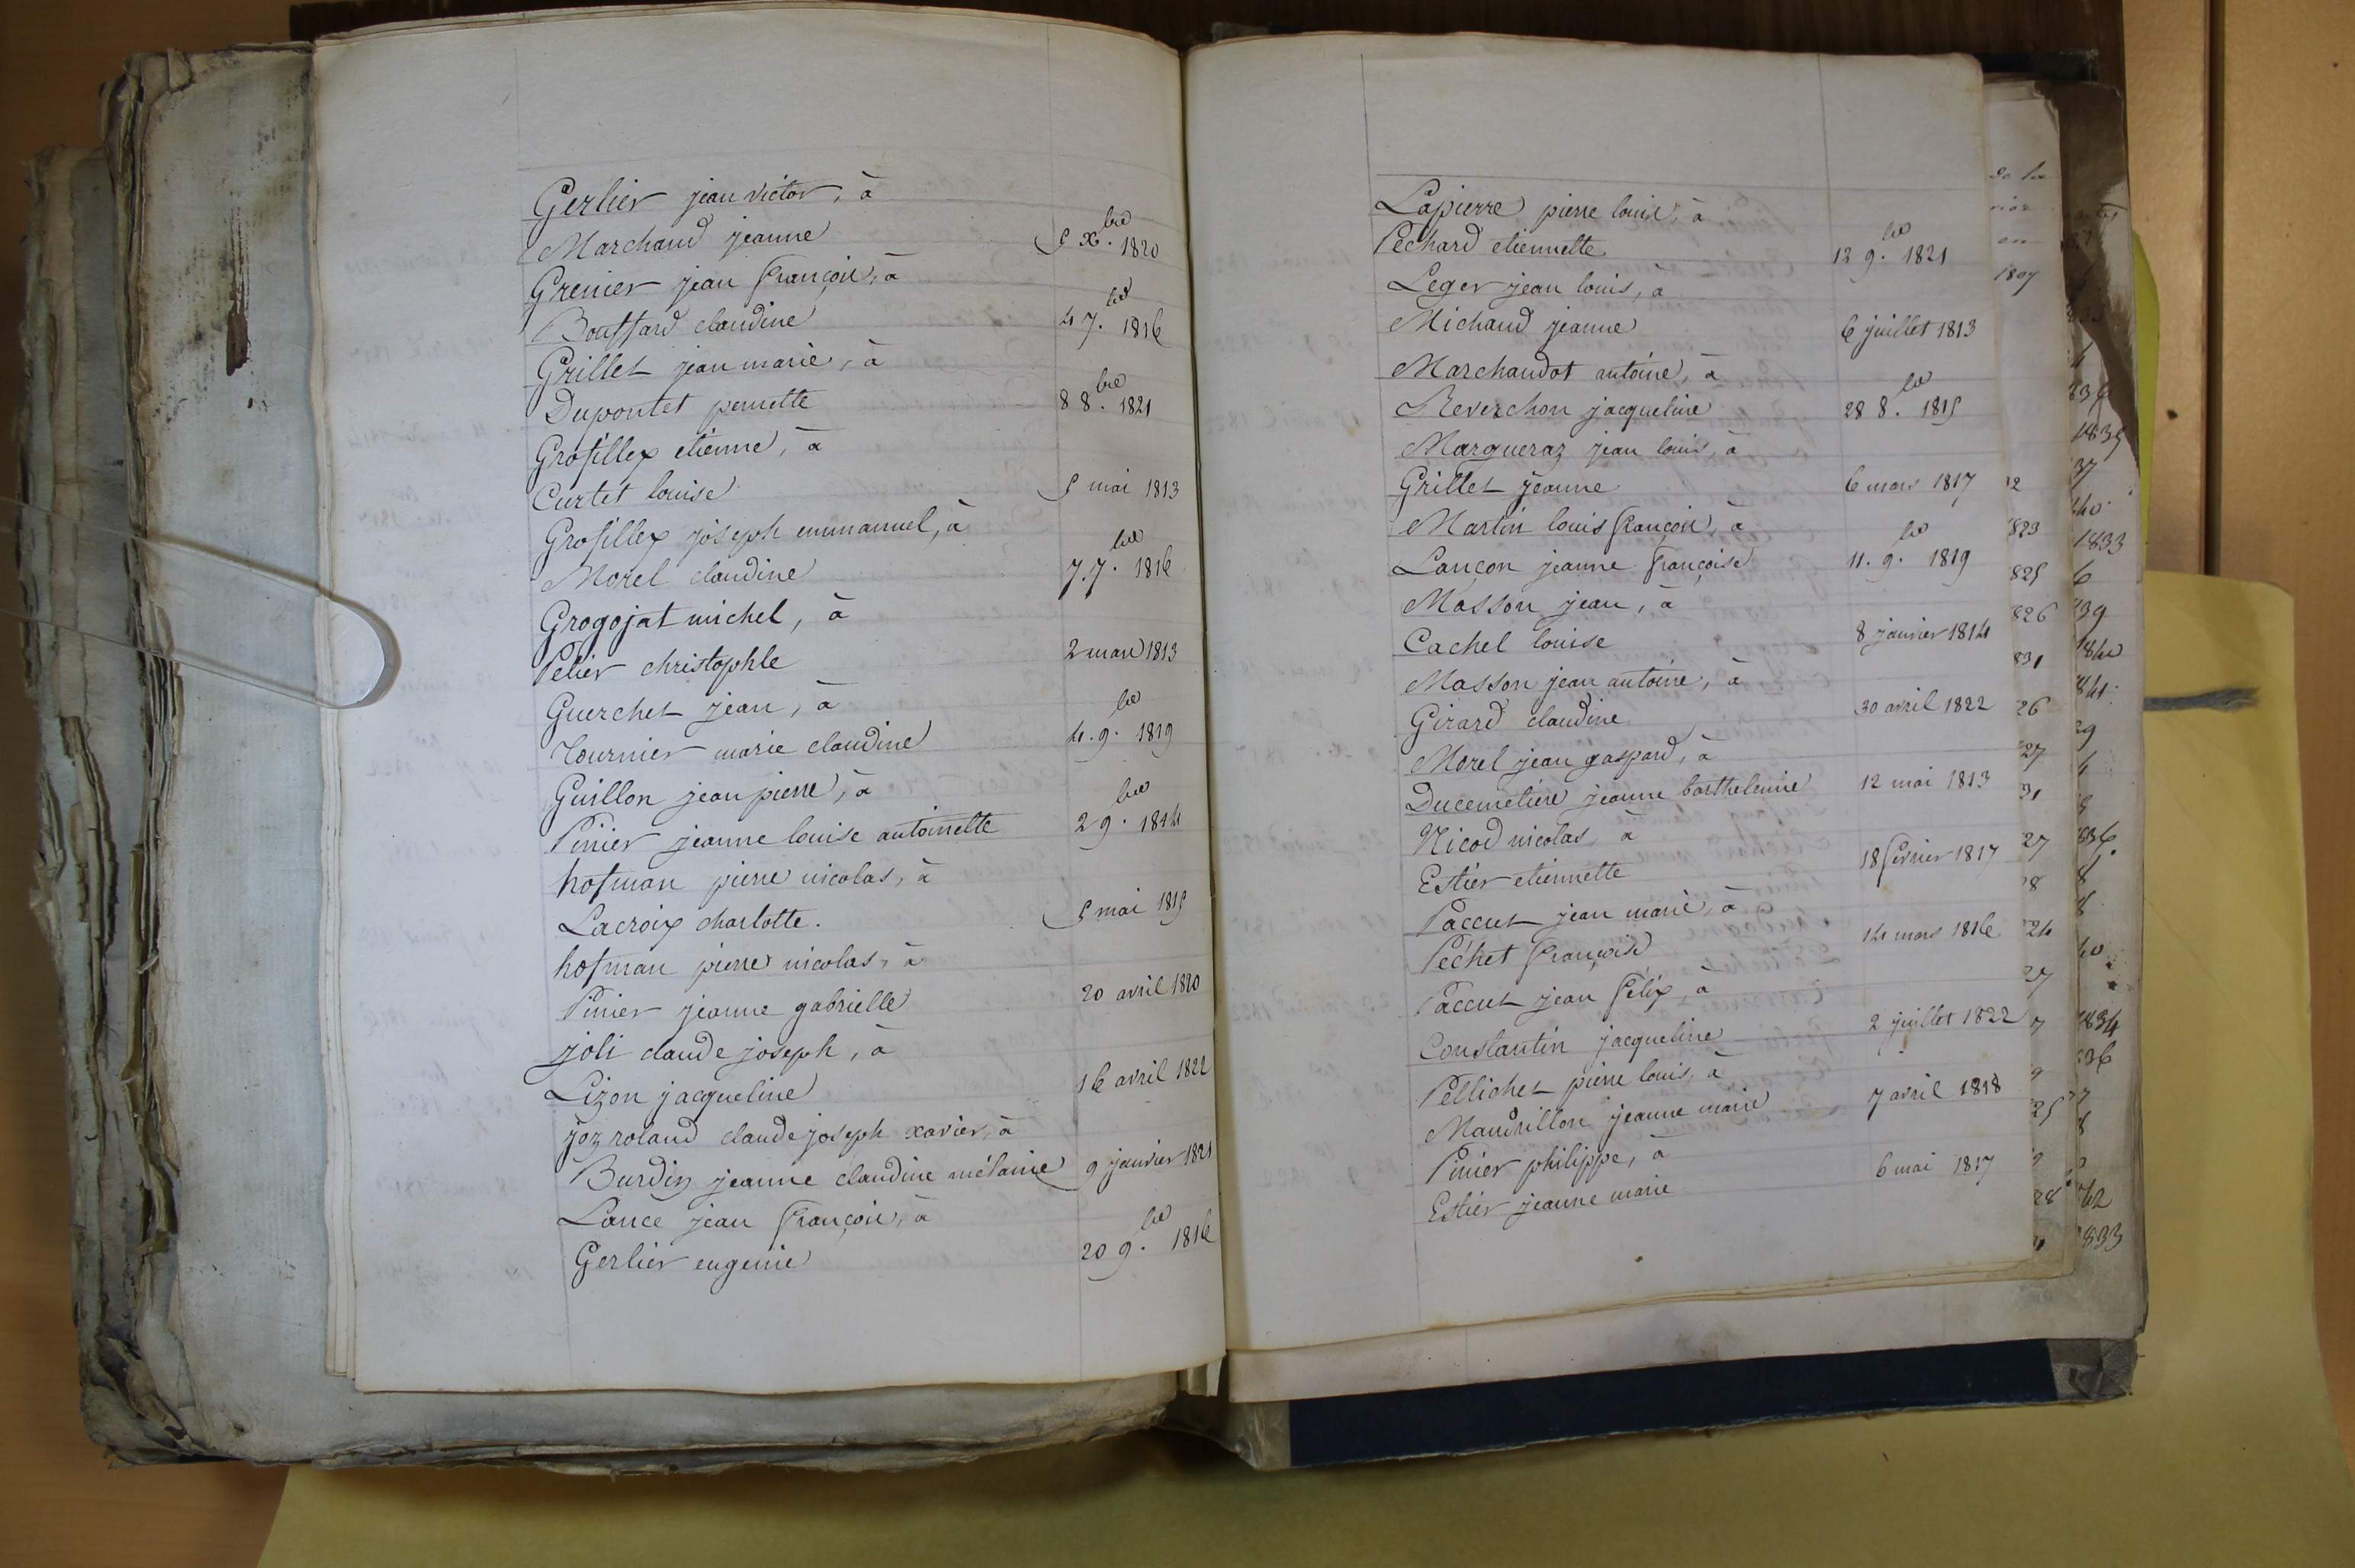 Gerlier jean victor, à
Marchand jeanne 5 Xbre 1820
Grenier jean françois, à
Bouffard claudine 4 7.bre 1816
Grillet jean marie, à
Dupontet pernette 8 8.bre 1821
Grosillex etienne, à
Curtet louise 5 mai 1813
Grosillex joseph emmanuel, à
Morel claudine 7.7.bre 1816
Grogojat michel, à
Pelier christophle 2 mars 1813
Guerchet jean, à
Tournier marie claudine 4.9.bre 1819
Guillon jean pierre, à
Pinier jeanne louise antoinette 2 9.bre 1814
hofman pierre nicolas, à
Lacroix charlotte. 5 mai 1815
hofman pierre nicolas, à
Pinier jeanne gabrielle 20 avril 1820
joli claude joseph, à
Lizon jacqueline 16 avril 1822
joz roland claude joseph xavier, à
Burdin jeanne claudine mélanie 9 janvier 1821
Lance jean françois, à
Gerlier eugenie 20 9.bre 1816
Lapierre pierre louis, à
Pechard etiennette 12 9.bre 1821
Leger jean louis, à
Michaud jeanne 6 juillet 1813
Marchandot antoine, à
Reverchon jacqueline 28 8.bre 1815
Margueraz jean louis, à
Grillet jeanne 6 mars 1817
Martin louis françois, à
Lançon jeanne françoise 11.9.bre 1819
Masson jean, à
Cachel louise 8 janvier 1814
Masson jean antoine, à
Girard claudine 30 avril 1822
Morel jean gaspard, à
Ducemetiere jeanne barthelemie 12 mai 1813
Nicod nicolas, à
Estier etiennette 18 fevrier 1817
Paccut jean marie, à
Péchet françoise 14 mars 1816
Paccut jean félix, à
Constantin jacqueline 2 juillet 1822
Pellichet pierre louis, à
Mandrillon jeanne marie 7 avril 1818
Pinier philippe, à
Estier jeanne marie 6 mai 1817